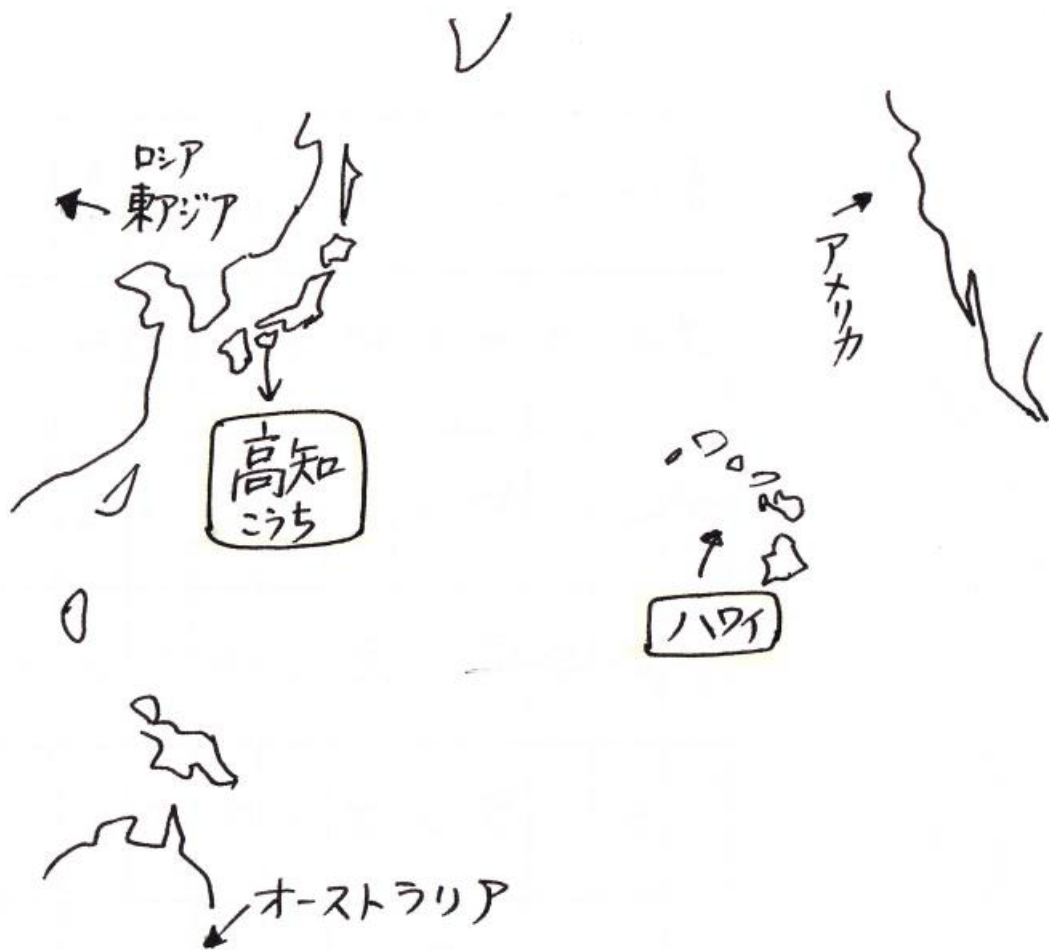 ロシア
東アジア
アメリカ
高知
こうち
ハワイ
オーストラリア